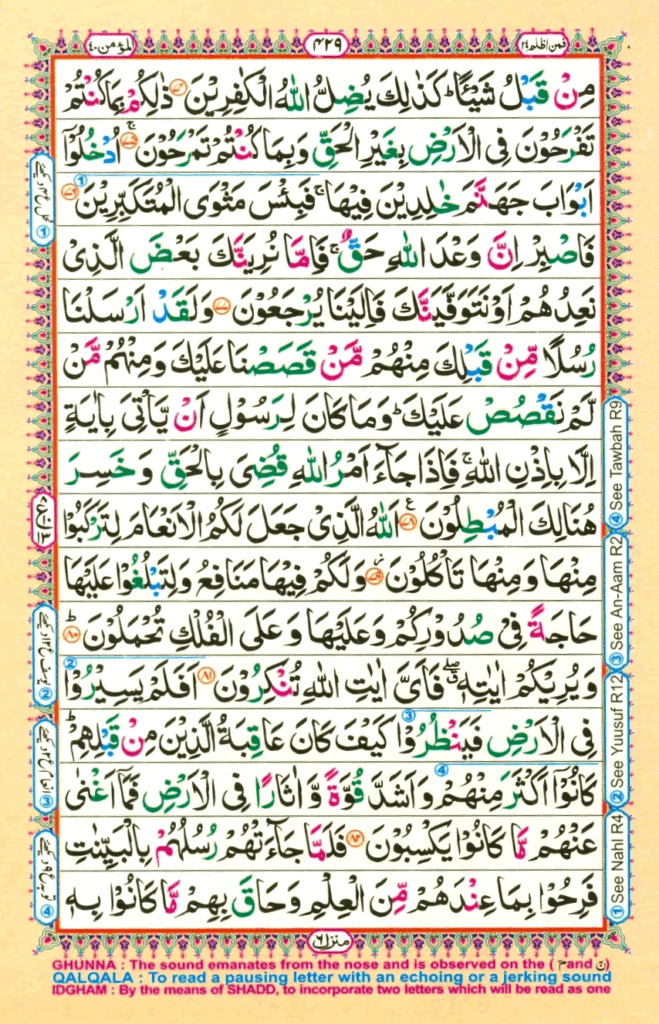 فمن اظلم ٢٤
٤٢٩
المؤمن ٤٠
مِنْ قَبْلُ شَيْـًٔا ؕ كَذٰلِكَ يُضِلُّ اللّٰهُ الْكٰفِرِيْنَ ﴿۷۴﴾ ذٰلِكُمْ بِمَا كُنْتُمْ
تَفْرَحُوْنَ فِى الْاَرْضِ بِغَيْرِ الْحَقِّ وَبِمَا كُنْتُمْ تَمْرَحُوْنَ ﴿۷۵﴾ۚ اُدْخُلُوْۤا
اَبْوَابَ جَهَنَّمَ خٰلِدِيْنَ فِيْهَا ۚ فَبِئْسَ مَثْوَى الْمُتَكَبِّرِيْنَ ﴿۷۶﴾
فَاصْبِرْ اِنَّ وَعْدَ اللّٰهِ حَقٌّ ۚ فَاِمَّا نُرِيَنَّكَ بَعْضَ الَّذِىْ
نَعِدُهُمْ اَوْ نَتَوَفَّيَنَّكَ فَاِلَيْنَا يُرْجَعُوْنَ ﴿۷۷﴾ وَلَقَدْ اَرْسَلْنَا
رُسُلًا مِّنْ قَبْلِكَ مِنْهُمْ مَّنْ قَصَصْنَا عَلَيْكَ وَمِنْهُمْ مَّنْ
لَّمْ نَقْصُصْ عَلَيْكَ ؕ وَمَا كَانَ لِرَسُوْلٍ اَنْ يَّاْتِىَ بِاٰيَةٍ
اِلَّا بِاِذْنِ اللّٰهِ ۚ فَاِذَا جَآءَ اَمْرُ اللّٰهِ قُضِىَ بِالْحَقِّ وَخَسِرَ
هُنَالِكَ الْمُبْطِلُوْنَ ﴿۷۸﴾ اَللّٰهُ الَّذِىْ جَعَلَ لَكُمُ الْاَنْعَامَ لِتَرْكَبُوْا
مِنْهَا وَمِنْهَا تَاْكُلُوْنَ ﴿۷۹﴾ وَلَكُمْ فِيْهَا مَنَافِعُ وَلِتَبْلُغُوْا عَلَيْهَا
حَاجَةً فِىْ صُدُوْرِكُمْ وَعَلَيْهَا وَعَلَى الْفُلْكِ تُحْمَلُوْنَ ﴿۸۰﴾ؕ
وَيُرِيْكُمْ اٰيٰتِهٖ ۖ فَاَىَّ اٰيٰتِ اللّٰهِ تُنْكِرُوْنَ ﴿۸۱﴾ اَفَلَمْ يَسِيْرُوْا
فِى الْاَرْضِ فَيَنْظُرُوْا كَيْفَ كَانَ عَاقِبَةُ الَّذِيْنَ مِنْ قَبْلِهِمْ ؕ
كَانُوْۤا اَكْثَرَ مِنْهُمْ وَاَشَدَّ قُوَّةً وَّاٰثَارًا فِى الْاَرْضِ فَمَاۤ اَغْنٰى
عَنْهُمْ مَّا كَانُوْا يَكْسِبُوْنَ ﴿۸۲﴾ فَلَمَّا جَآءَتْهُمْ رُسُلُهُمْ بِالْبَيِّنٰتِ
فَرِحُوْا بِمَا عِنْدَهُمْ مِّنَ الْعِلْمِ وَحَاقَ بِهِمْ مَّا كَانُوْا بِهٖ
④ See Tawbah R9
③ See An-Aam R2
② See Yuusuf R12
① See Nahl R4
منزل ٦
GHUNNA : The sound emanates from the nose and is observed on the ( م and ن)
QALQALA : To read a pausing letter with an echoing or a jerking sound
IDGHAM : By the means of SHADD, to incorporate two letters which will be read as one